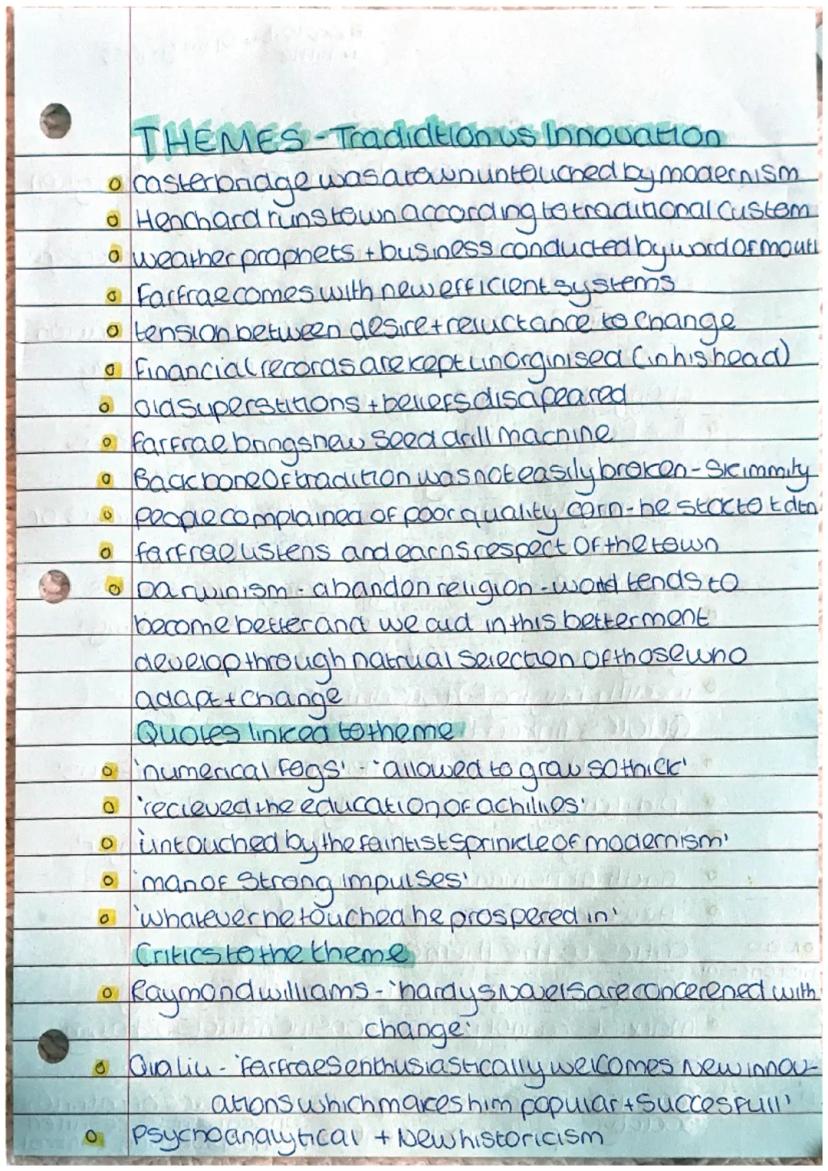 THEMES - Tradidtion vs Innovation
casterbridge was a town untouched by modernism
Henchard runs town according to traditional custom
weather prophets + business conducted by word of mouth
Farfrae comes with new efficient systems
tension between desire + reluctance to change
Financial records are kept unorginised (in his head)
old superstitions + beliefs disapeared
farfrae brings new seed drill machine
Backbone of tradition was not easily broken - Skimmity
people complained of poor quality corn - he stack to tdtn
farfrae listens and earns respect of the town
Darwinism - abandon religion - world tends to
become better and we aid in this betterment
develop through natrual selection of those who
adapt + change
Quotes linked to theme
'numerical fogs' - 'allowed to grow so thick'
'recieved the education of achillies'
'untouched by the faintist sprinkle of modernism'
'man of strong impulses'
'whatever he touched he prospered in'
Critics to the theme
Raymond williams - 'hardys novels are concerened with
change'
Qia liu - 'farfraes enthusiastically welcomes new innov-
ations which makes him popular + succesfull'
Psychoanalytical + New historicism